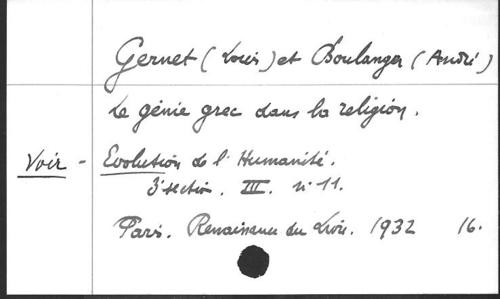 Gernet (Louis) et Boulanger (André)
Le génie grec dans la religion.
Voir - Evolution de l'Humanité.
3e section. III. n° 11.
Paris. Renaissance du Livre. 1932 16.